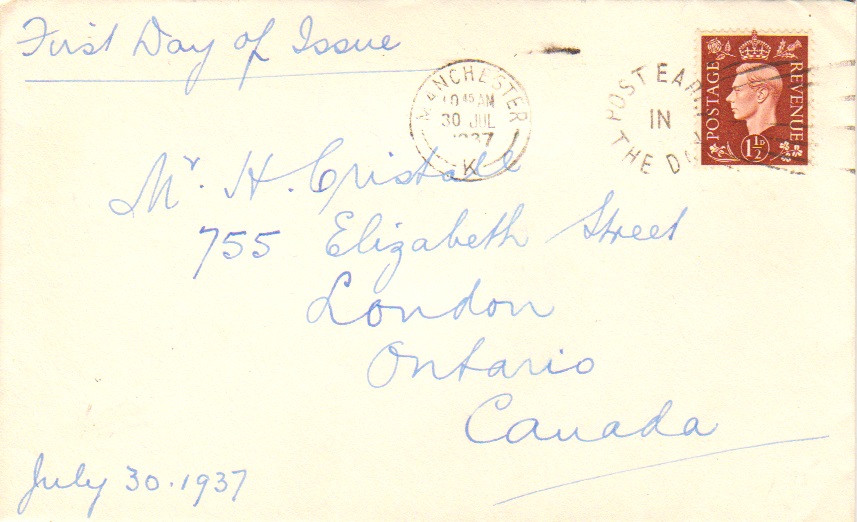 First Day of Issue
MANCHESTER
10 45 AM
30 JUL
1937
K
POST EAR
IN
THE D
POSTAGE
REVENUE
1½D
Mr. H. Cristall
755 Elizabeth Street
London
Ontario
Canada
July 30.1937